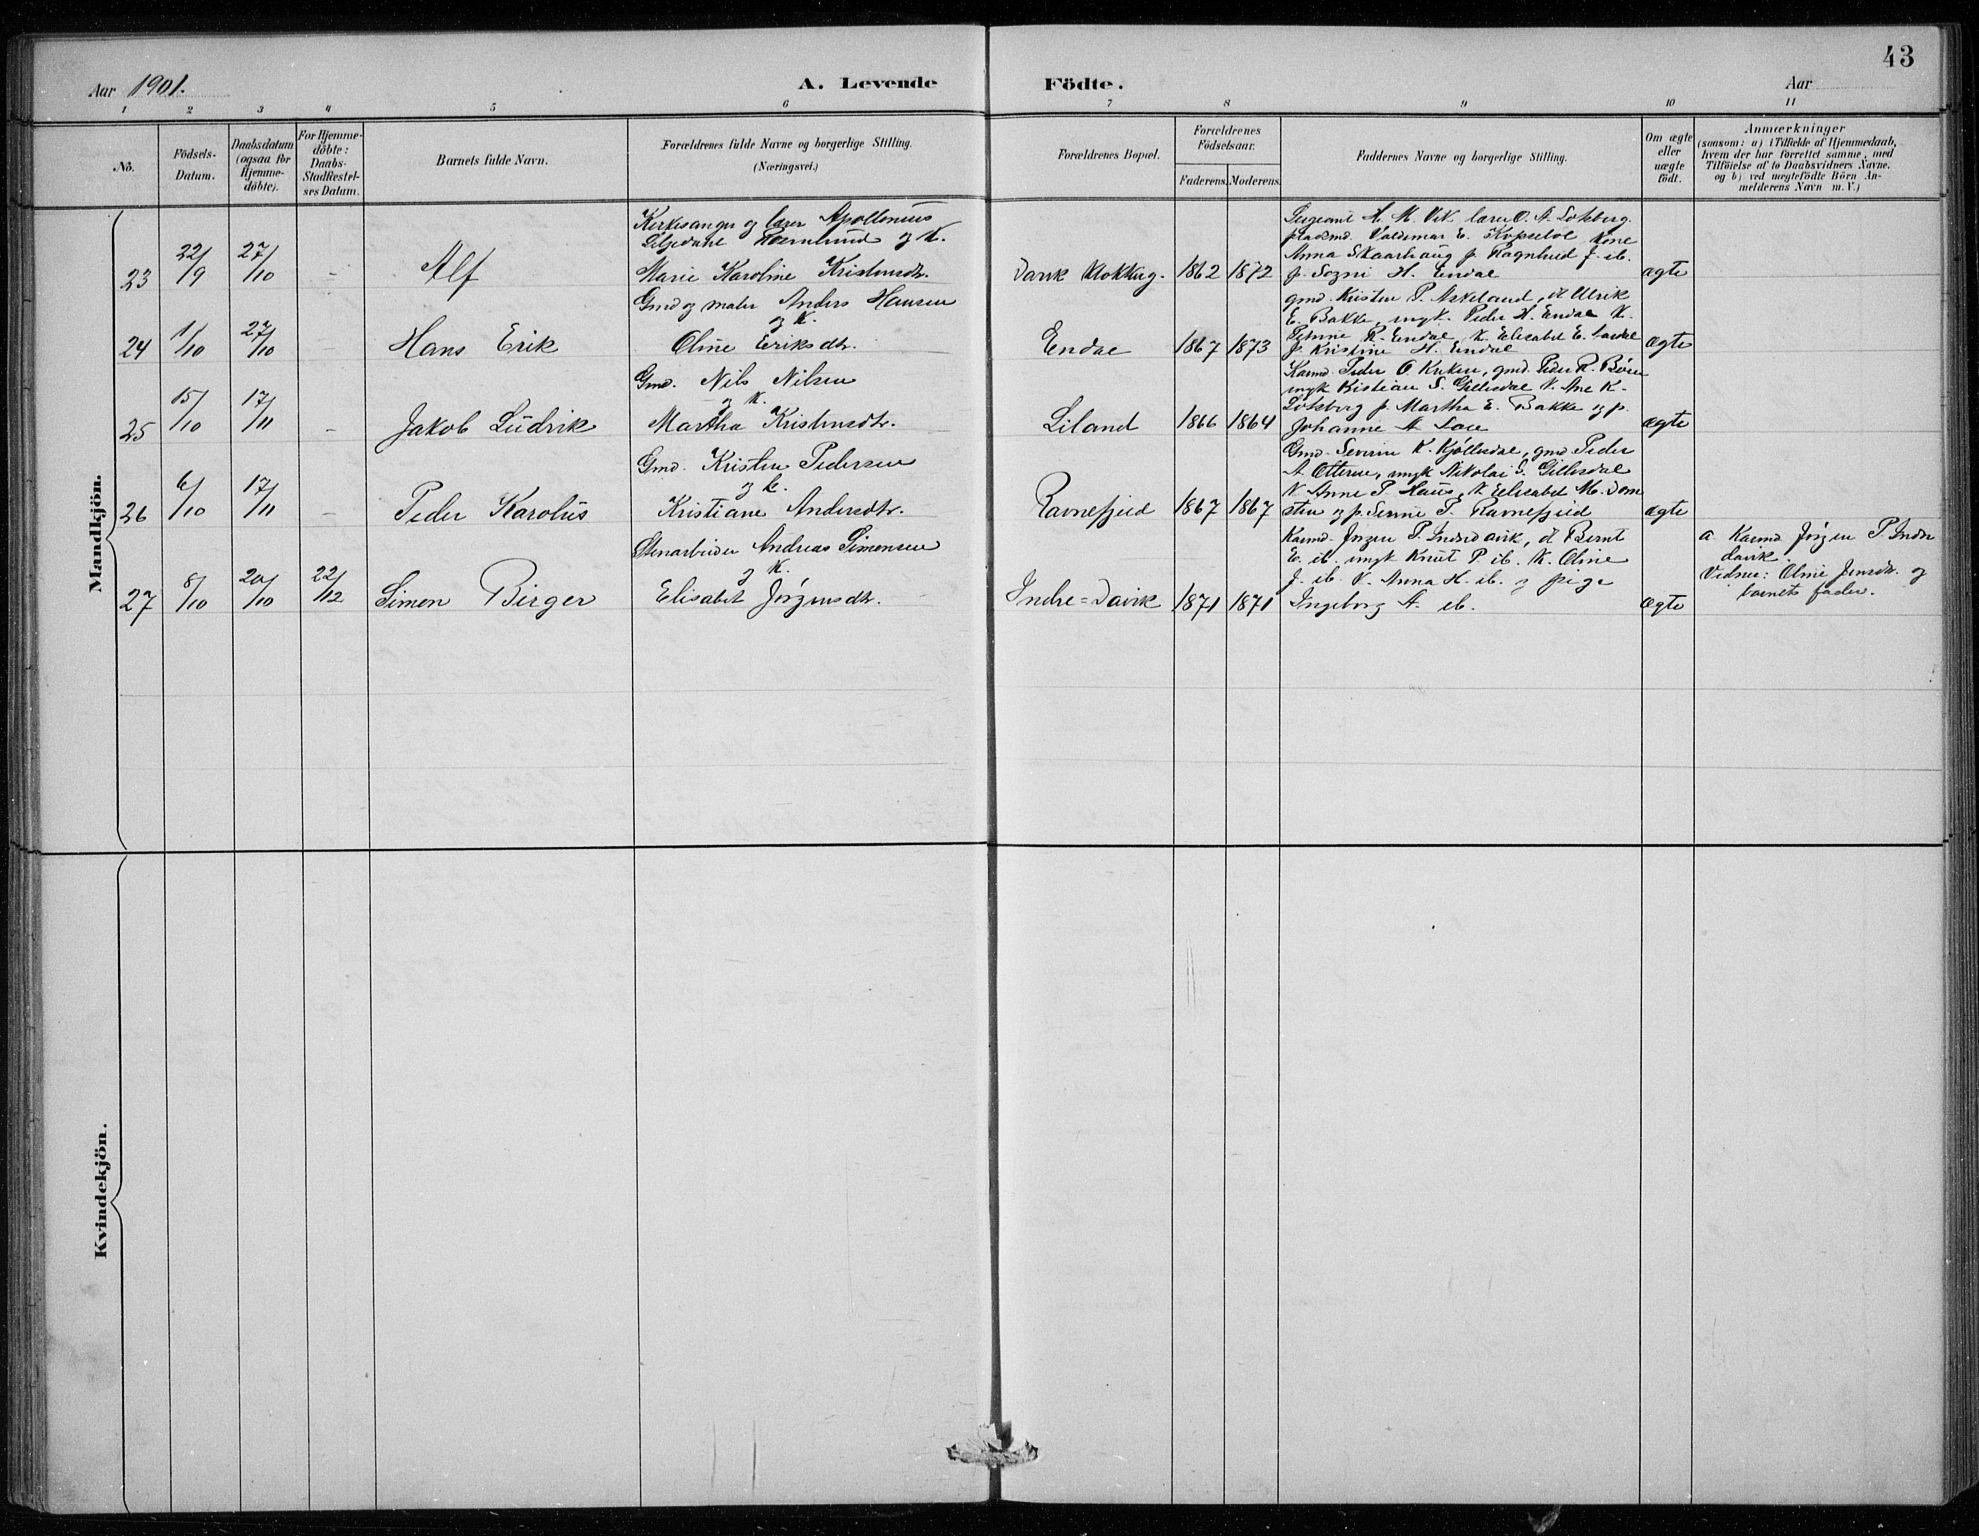 43
Aar 1901.
A. Levende Födte.
Aar
1 2 3 4 5 6 7 8 9 10 11
No.
Födsels-Datum.
Daabsdatum (ogsaa for Hjemme-döbte).
For Hjemme-döbte: Daabs-Stadfæstel-ses Datum.
Barnets fulde Navn.
Forældrenes fulde Navne og borgerlige Stilling.
(Næringsvei.)
Forældrenes Bopæl.
Forældrenes Födselsaar.
Faderens. Moderens.
Faddernes Navne og borgerlige Stilling.
Om ægte eller uægte födt.
Anmærkninger
(saasom: a) i Tilfælde af Hjemmedaab,
hvem der har forrettet samme, med
Tilföielse af to Daabsvidners Navne.
og b) ved uægtefödte Börn An-
melderens Navn m. V.)
Mandkjön.
23 22/9 27/10 - Alf
Kirkesanger og lærer Apollonius
og K.
Marie Karoline Kristensdtr.
Davik Klokkerg. 1862 1872
Sergeant H. M. Vik lærer O. A. Lotsberg
pladsmd. Valdemar E. Kopsebøl Kone
Anna Skaarhaug p. Ragnhild J. ib.
p. Sozni H. Endal
ægte
24 1/10 27/10 - Hans Erik
Gmd og maler Anders Hansen
og K.
Oline Eriksdtr.
Endal 1867 1873
gmd. Kristen P. Askeland, d. Ulrik
E. Bakke, ungk. Peder H. Endal K.
R. Endal, K. Elisabet E.
p. Kristine H. Endal
ægte
25 15/10 17/11 - Jakob Ludvik
Gmd. Nils Nilsen
og K.
Martha Kristensdtr.
Liland 1866 1864
Kaarmd. Peder O. gmd. Peder R.
ungk Kristian S. Gillesdal K. Ane K.
Lotsberg p. Martha E. Bakke og p.
Johanne A.
ægte
26 6/10 17/11 - Peder Karolus
Gmd. Kristen Pedersen
og K.
Kristiane Andersdtr.
Ravnefjeld 1867 1867
Gmd. Severin K. Kjøllesdal, gmd Peder
A. Otteren, ungk Nikolai S. Gillesdal
K Anne P. Haus, K Elisabet M. Dom
sten og p. T. Ravnefjeld
ægte
27 8/10 20/10 22/12 Simon Birger
Stenarbeider Andreas Simonsen
og K.
Elisabet Jørgensdtr.
Indre=Davik 1871 1871
Kaarmd. Jørgen P. Indredavik, d. Bernt
E. ib. ungk Knut P. ib. K. Oline
J. ib K. Anna H. ib. og pige
Ingeborg A. ib.
ægte
a Kaarmd Jørgen P. Indre
davik.
Vidner: Oline Jensdtr. og
barnets fader.
Kvindekjön.